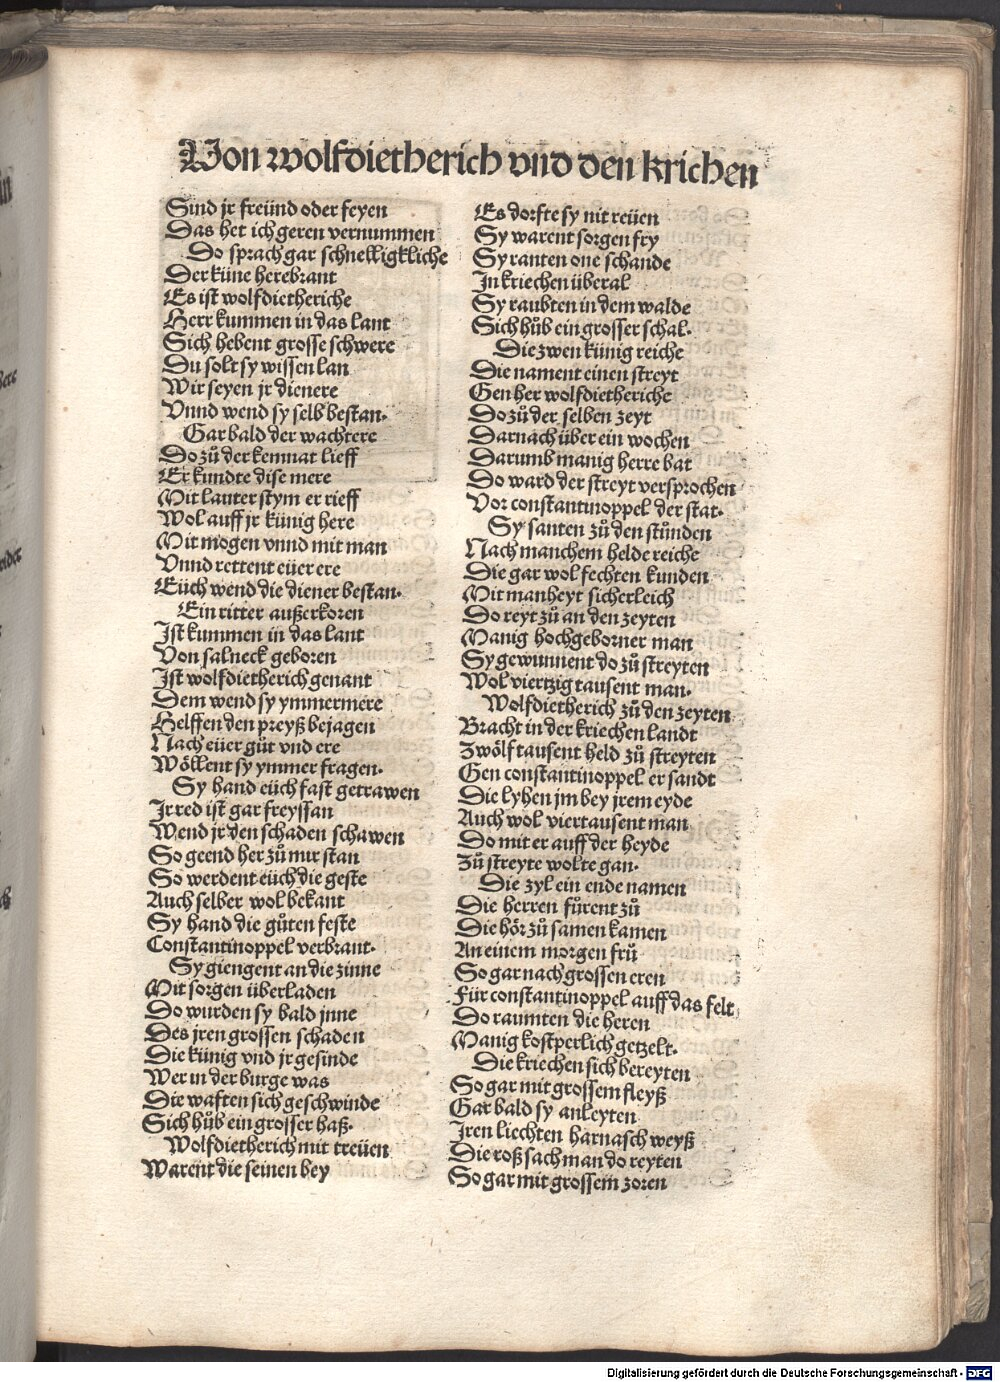 Von wolfdietherich vnd den krichen
Sind jr freünd oder feyen
Das het ich geren vernummen
Do sprach gar schnelligkliche
Der küne herebrant
Es ist wolfdietheriche
Herr kummen in das lant
Sich hebent grosse schwere
Du solt sy wissen lan
Wir seyen jr dienere
Vnnd wend sy selb bestan.
Gar bald der wachtere
Do zů der kemnat lieff
Er kundte dise mere
Mit lauter stym er rieff
Wol auff jr künig here
Mit mogen vnnd mit man
Vnnd rettent eüer ere
Eüch wend die diener bestan.
Ein ritter außerkoren
Ist kummen in das lant
Von salneck geboren
Ist wolfdietherich genant
Dem wend sy ymmermere
Helffen den preyß bejagen
Nach eüer gůt vnd ere
Wöllent sy ymmer fragen.
Sy hand eüch fast getrawen
Ir red ist gar freyssan
Wend jr den schaden schawen
So geend her zů mir stan
So werdent eüch die geste
Auch selber wol bekant
Sy hand die gůten feste
Constantinoppel verbrant.
Sy giengent an die zinne
Mit sorgen überladen
Do wurden sy bald jnne
Des jren grossen schaden
Die künig vnd jr gesinde
Wer in der burge was
Die waften sich geschwinde
Sich hůb ein grosser haß.
Wolfdietherich mit treüen
Warent die seinen bey
Es dorfte sy nit reüen
Sy warent sorgen fry
Sy ranten one schande
In kriechen überal
Sy raubten in dem walde
Sich hůb ein grosser schal.
Die zwen künig reiche
Die nament einen streyt
Gen her wolfdietheriche
Do zů der selben zeyt
Darnach über ein wochen
Darumb manig herre bat
Do ward der streyt versprochen
Vor constantinoppel der stat.
Sy santen zů den stůnden
Nach manchem helde reiche
Die gar wol fechten kunden
Mit manheyt sicherleich
Do reyt zů an den zeyten
Manig hochgeborner man
Sy gewunnent do zů streyten
Wol viertzig tausent man.
Wolfdietherich zů den zeyten
Bracht in der kriechen landt
Zwölf tausent held zů streyten
Gen constantinoppel er sandt
Die lyhen jm bey jrem eyde
Auch wol viertausent man
Do mit er auff der heyde
Zů streyte wolte gan.
Die zyl ein ende namen
Die herren fürent zů
Die hör zů samen kamen
An einem morgen frü
So gar nach grossen eren
Für constantinoppel auff das felt
Do raumten die heren
Manig kostperlich getzelt.
Die kriechen sich bereyten
So gar mit grossem fleyß
Gar bald sy anleyten
Iren liechten harnasch weyß
Die roß sach man do reyten
So gar mit grossem zoren
Digitalisierung gefördert durch die Deutsche Forschungsgemeinschaft - DFG